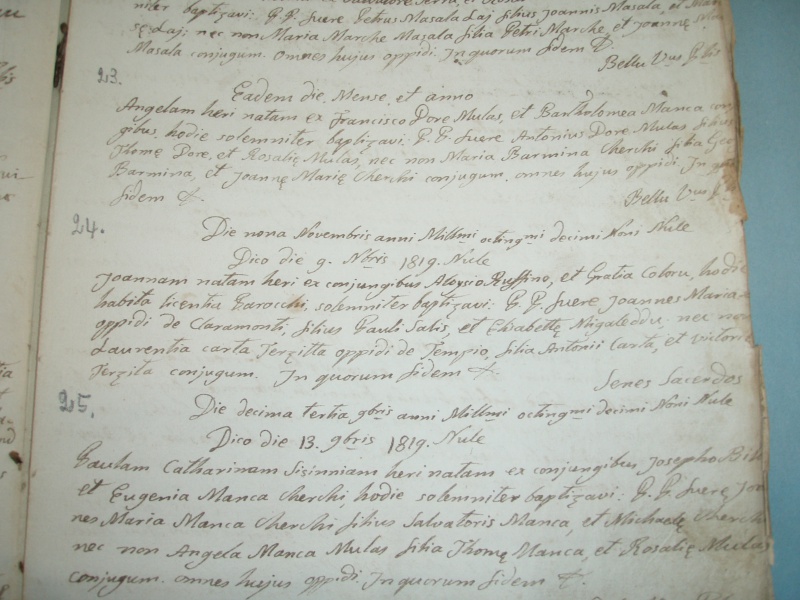 niter baptizavi: P. P. fuere Petrus Masala Laj filius Joannis Masala, et
ę Laj; nec non Maria Marche Masala filia Petri Marche, et Joannę
Masala conjugum. omnes hujus oppidi. In quorum fidem &.
Bellu Vus
23.
Eadem die, Mense, et anno
Angelam heri natam ex Francisco Dore Mulas, et Bartholomea Manca con
gibus, hodie solemniter baptizavi: P. P. fuere Antonius Dore Mulas filius
Thomę Dore, et Rosalię Mulas, nec non Maria Barmina Cherchi filia
Barmina, et Joannę Marię Cherchi conjugum. omnes hujus oppidi. In
fidem &.
Bellu Vus
24.
Die nona Novembris anni Millmi octingmi decimi Noni Nule
Dico die 9. Nbris 1819. Nule
Joannam natam heri ex conjungibus Aloysio Ruffino, et Gratia Coloru, hodie
habita licentia Parocchi, solemniter baptizavi: P. P. fuere Joannes Maria
oppidi de Claramonti, filius Pauli Satis, et Elisabettę Migaleddu, nec non
Laurentia Carta Terzitta oppidi de Tempio, filia Antonii Carta, et Victorię
Terzita conjugum. In quorum fidem &.
Senes Sacerdos
25.
Die decima tertia 9bris anni Millmi octingmi decimi Noni Nule
Dico die 13. 9bris 1819. Nule
Paulam Catharinam Sisinniam heri natam ex conjungibus Josepho
et Eugenia Manca Cherchi, hodie solemniter baptizavi: P. P. fuere Joan
nes Maria Manca Cherchi filius Salvatoris Manca, et Michaelę Cherchi
nec non Angela Manca Mulas filia Thomę Manca, et Rosalię Mulas
conjugum. omnes hujus oppidi. In quorum fidem &.